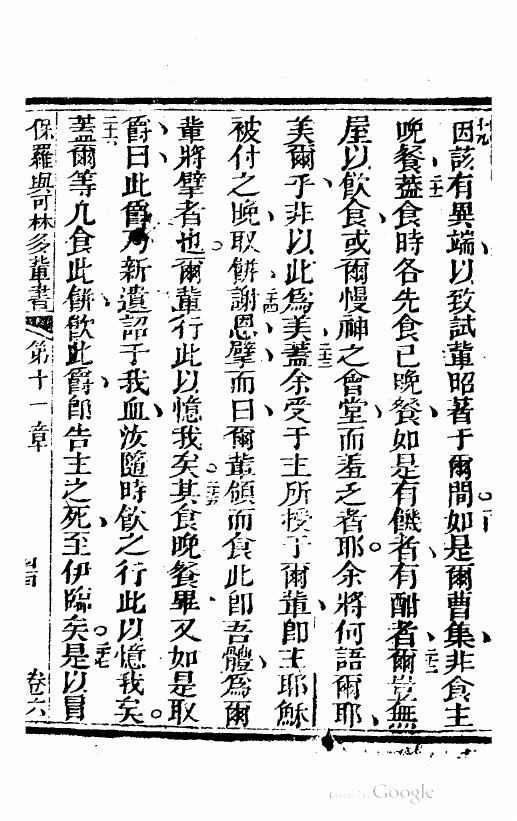 十九因該有異端、以致試輩昭著于爾間。二十如是爾曹集、非食主
晚餐、二十一蓋食時各先食己晚餐、如是有饑者、有酣者、二十二爾豈無
屋以飲食、或爾慢神之會堂、而羞乏者耶。余將何語爾耶、
美爾乎、非以此為美、二十三蓋余受于主所授于爾輩、即主耶穌
被付之晚取餅、二十四謝恩、擘而曰、爾輩領而食、此即吾體、為爾
輩將擘者也、爾輩行此以憶我矣。二十五其食晚餐畢、又如是取
爵曰、此爵乃新遺詔于我血、汝隨時飲之、行此以憶我矣。
二十六蓋爾等凡食此餅、飲此爵、即告主之死、至伊臨矣。二十七是以冒
保羅與可林多輩書 第十一章 卷六
Digitized by Google